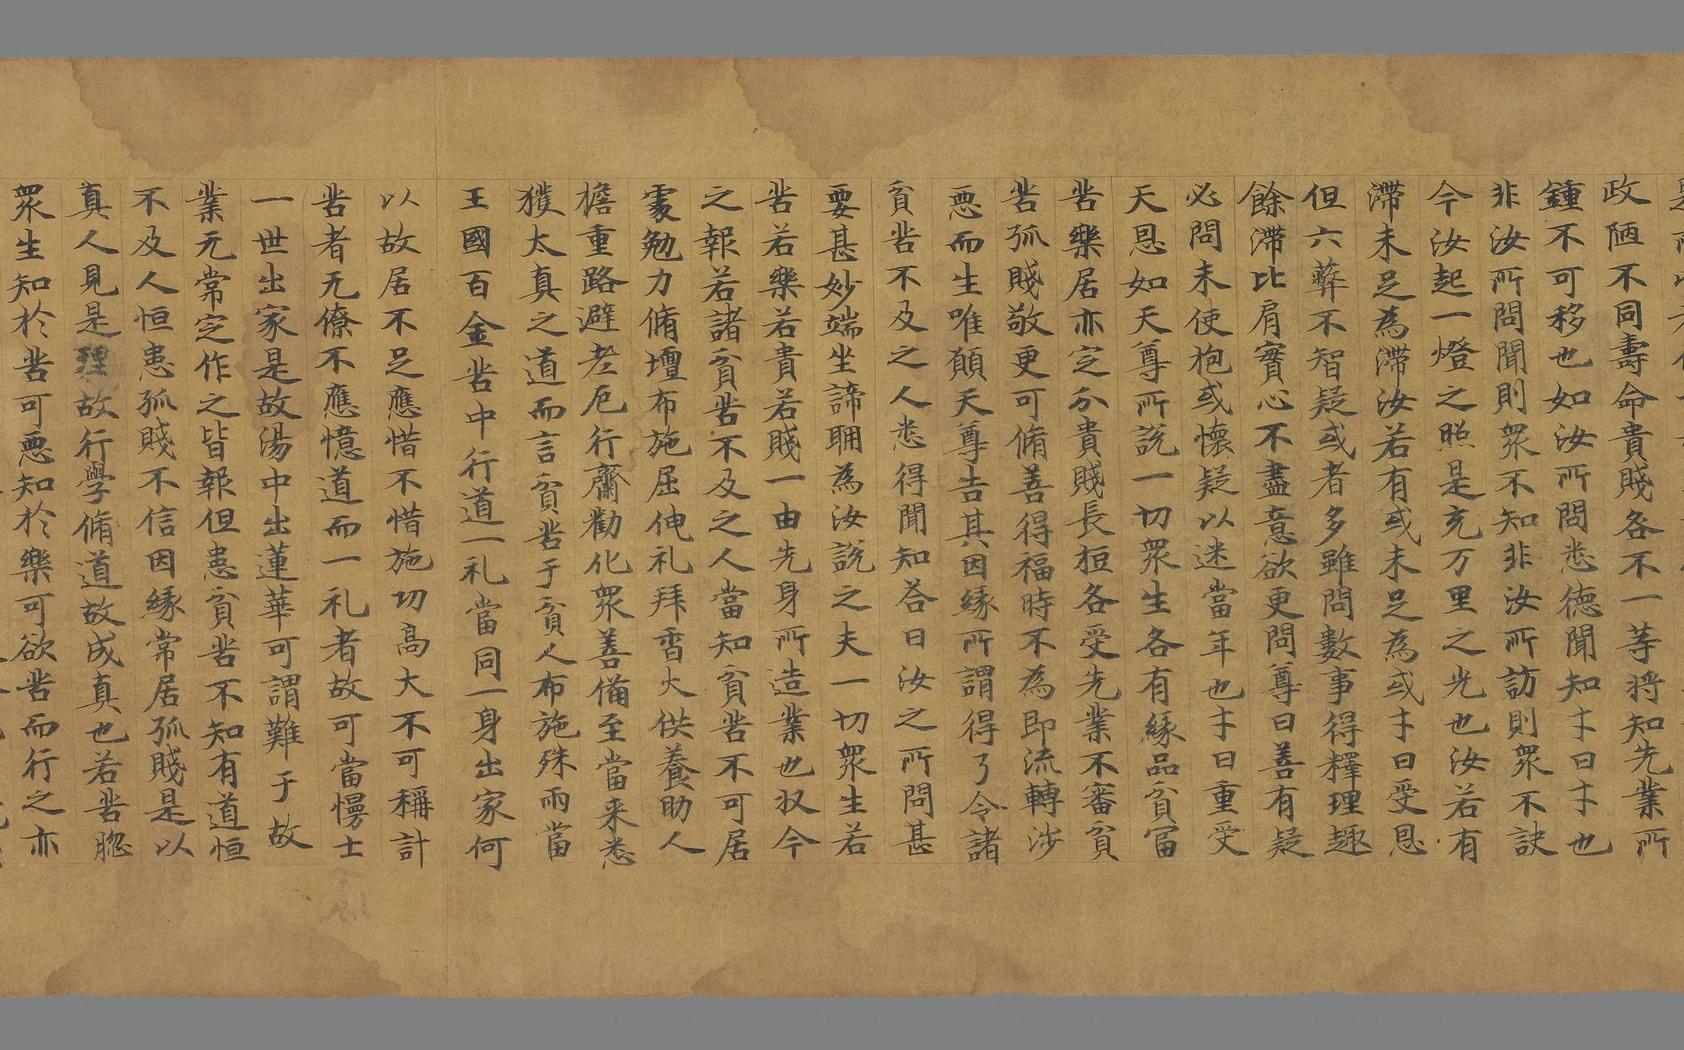 政陋不同壽命貴賤各不一等將知先業所
鍾不可移也如汝所問悉徳聞知𠦑曰𠦑也
非汝所問聞則衆不知非汝所訪則衆不訣
今汝起一燈之照是充万里之光也汝若有
滞未足為滞汝若有或未足為或𠦑曰受恩
但六薜不智疑或者多雖問數事得釋理趣
餘滞比肩實心不盡意欲更問尊曰善有疑
必問未使抱或懷疑以迷當年也𠦑曰重受
天恩如天尊所説一切衆生各有縁品貧冨
苦樂居亦定分貴賤長桓各受先業不審貧
苦孤賤敬更可脩善得福時不為即流轉渉
惡而生唯願天尊告其因縁所謂得了令諸
貧苦不及之人悉得聞知荅曰汝之所問甚
要甚妙端坐諦聽為汝説之夫一切衆生若
苦若樂若貴若賤一由先身所造業也奴今
之報若諸貧苦不及之人當知貧苦不可居
𠁅勉力脩壇布施屈伸礼拜香火供養助人
檐重路避老厄行齋勸化衆善備至當来悉
獲太真之道而言貧苦于貧人布施殊雨當
王國百金苦中行道一礼當同一身出家何
以故居不足應惜不惜施切高大不可稱計
苦者无僚不應憶道而一礼者故可當慢士
一世出家是故湯中出蓮華可謂難于故
業无常定作之皆報但患貧苦不知有道恒
不及人恒患孤賤不信因縁常居孤賤是以
真人見是理故行學脩道故成真也若苦𢚩
衆生知於苦可惡知於樂可欲苦而行之亦